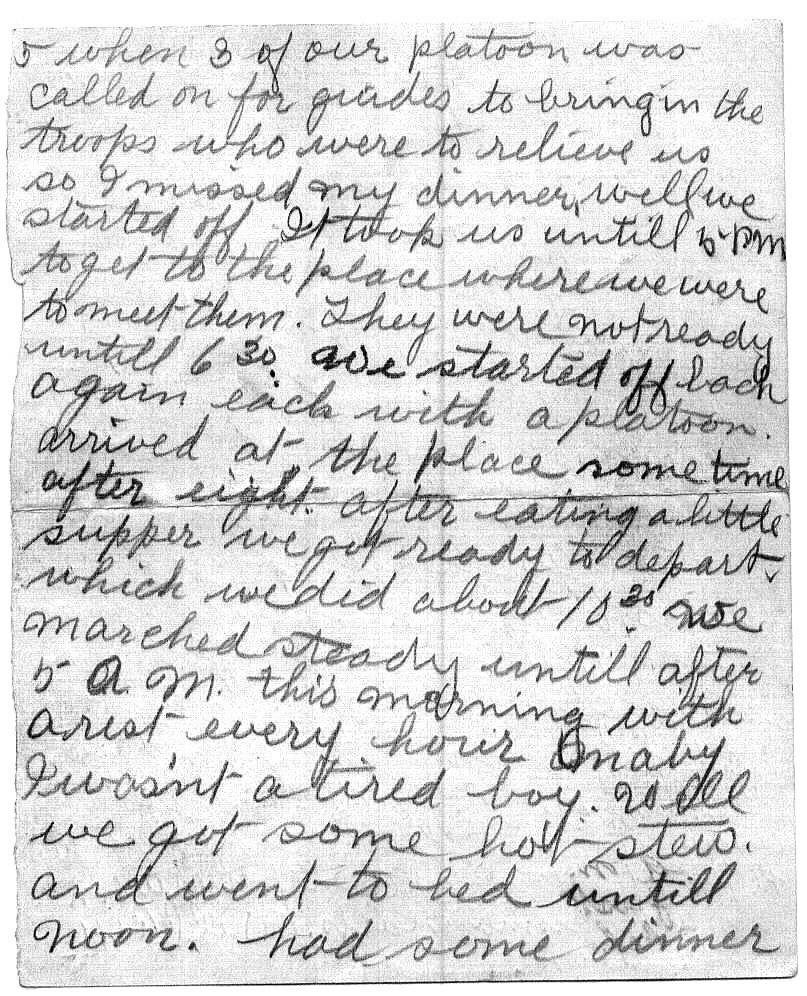 5 when 3 of our platoon was
called on for guides to bring in the
troops who were to relieve us
so I missed my dinner, well we
started off It took us untill 5 PM
to get to the place where we were
to meet them. They were not ready
untill 6 30. We started off back
again each with a platoon.
arrived at the place sometime
after eight. after eating a little
supper we got ready to depart.
which we did about 10 30. We
marched steady untill after
5 A. M. this morning with
a rest every hour O maby
I wasn't a tired boy. Well
we got some hot stew.
and went to bed untill
noon. had some dinner